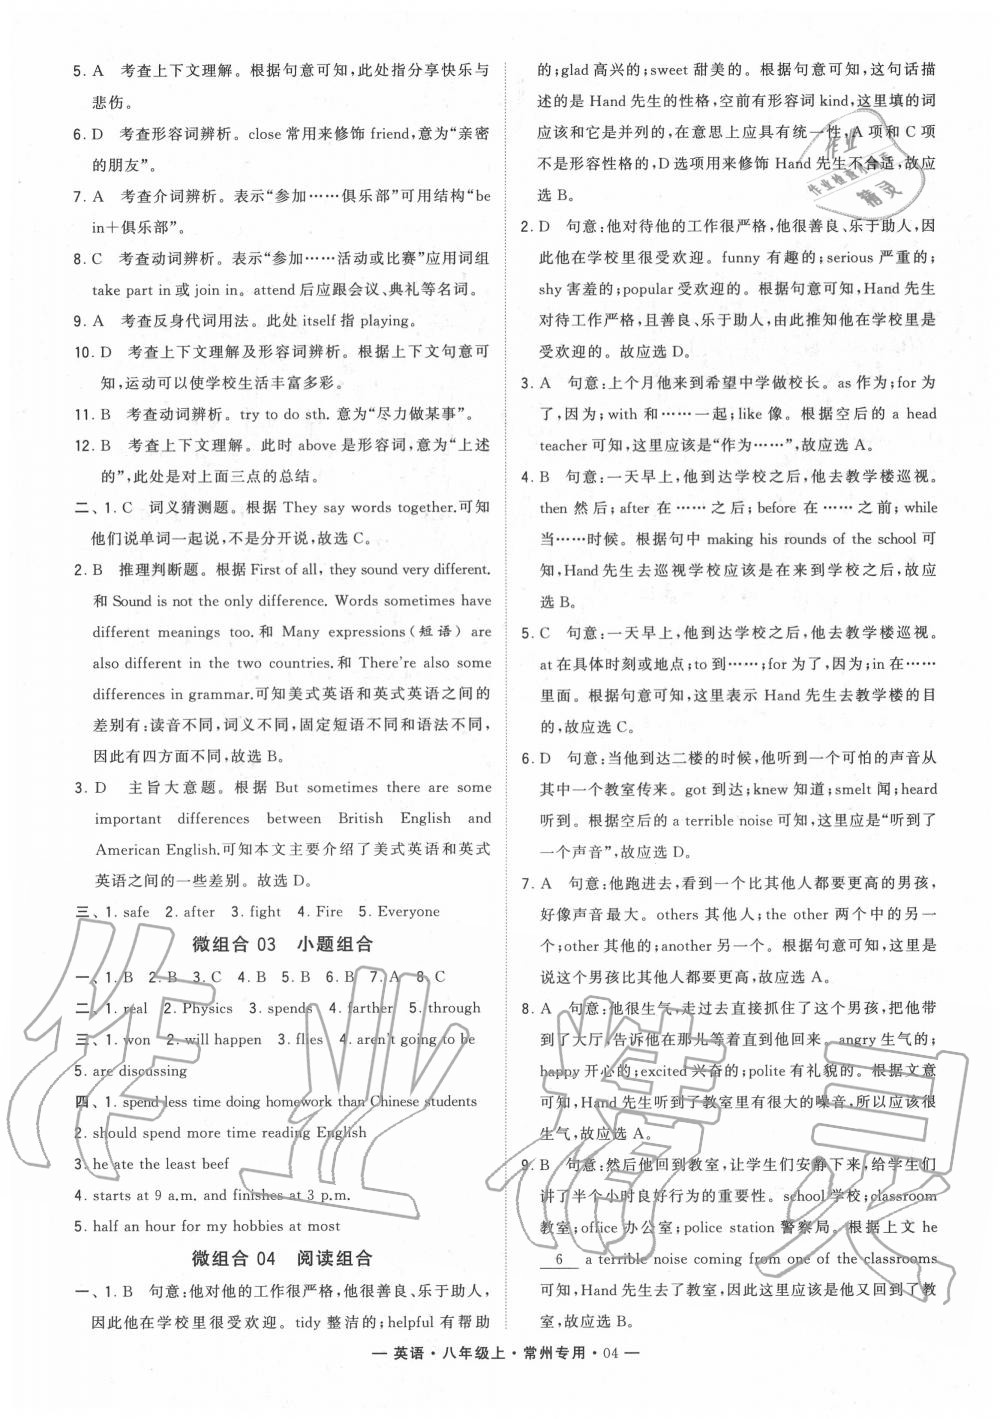 5. A　考查上下文理解。根据句意可知,此处指分享快乐与
悲伤。
6. D　考查形容词辨析。close 常用来修饰 friend,意为“亲密
的朋友”。
7. A　考查介词辨析。表示“参加……俱乐部”可用结构“be
in＋俱乐部”。
8. C　考查动词辨析。表示“参加……活动或比赛”应用词组
take part in 或 join in。attend 后应跟会议、典礼等名词。
9. A　考查反身代词用法。此处 itself 指 playing。
10. D　考查上下文理解及形容词辨析。根据上下文句意可
知,运动可以使学校生活丰富多彩。
11. B　考查动词辨析。try to do sth. 意为“尽力做某事”。
12. B　考查上下文理解。此时 above 是形容词,意为“上述
的”,此处是对上面三点的总结。
二、1. C　词义猜测题。根据 They say words together.可知
他们说单词一起说,不是分开说,故选 C。
2. B　推理判断题。根据 First of all, they sound very different.
和 Sound is not the only difference. Words sometimes have
different meanings too.和 Many expressions(短语) are
also different in the two countries.和 There're also some
differences in grammar.可知美式英语和英式英语之间的
差别有:读音不同,词义不同,固定短语不同和语法不同,
因此有四方面不同,故选 B。
3. D　主旨大意题。根据 But sometimes there are some
important differences between British English and
American English.可知本文主要介绍了美式英语和英式
英语之间的一些差别。故选 D。
三、1. safe　2. after　3. fight　4. Fire　5. Everyone
微组合 03　小题组合
一、1. B　2. B　3. C　4. B　5. B　6. B　7. A　8. C
二、1. real　2. Physics　3. spends　4. farther　5. through
三、1. won　2. will happen　3. flies　4. aren't going to be
5. are discussing
四、1. spend less time doing homework than Chinese students
2. should spend more time reading English
3. he ate the least beef
4. starts at 9 a.m. and finishes at 3 p.m.
5. half an hour for my hobbies at most
微组合 04　阅读组合
一、1. B　句意:他对他的工作很严格,他很善良、乐于助人,
因此他在学校里很受欢迎。tidy 整洁的;helpful 有帮助
的;glad 高兴的;sweet 甜美的。根据句意可知,这句话描
述的是 Hand 先生的性格,空前有形容词 kind,这里填的词
应该和它是并列的,在意思上应具有统一性,A 项和 C 项
不是形容性格的,D 选项用来修饰 Hand 先生不合适,故应
选 B。
2. D　句意:他对待他的工作很严格,他很善良、乐于助人,因
此他在学校里很受欢迎。funny 有趣的;serious 严重的;
shy 害羞的;popular 受欢迎的。根据句意可知,Hand 先生
对待工作严格,且善良、乐于助人,由此推知他在学校里是
受欢迎的。故应选 D。
3. A　句意:上个月他来到希望中学做校长。as 作为;for 为
了,因为;with 和……一起;like 像。根据空后的 a head
teacher 可知,这里应该是“作为……”,故应选 A。
4. B　句意:一天早上,他到达学校之后,他去教学楼巡视。
then 然后;after 在……之后;before 在……之前;while
当……时候。根据句中 making his rounds of the school 可
知,Hand 先生去巡视学校应该是在来到学校之后,故应
选 B。
5. C　句意:一天早上,他到达学校之后,他去教学楼巡视。
at 在具体时刻或地点;to 到……;for 为了,因为;in 在……
里面。根据句意可知,这里表示 Hand 先生去教学楼的目
的,故应选 C。
6. D　句意:当他到达二楼的时候,他听到一个可怕的声音从
其中一个教室传来。got 到达;knew 知道;smelt 闻;heard
听到。根据空后的 a terrible noise 可知,这里应是“听到了
一个声音”,故应选 D。
7. A　句意:他跑进去,看到一个比其他人都要更高的男孩,
好像声音最大。others 其他人;the other 两个中的另一
个;other 其他的;another 另一个。根据句意可知,这里是
说这个男孩比其他人都要更高,故应选 A。
8. A　句意:他很生气,走过去直接抓住了这个男孩,把他带
到了大厅,告诉他在那儿等着直到他回来。angry 生气的;
happy 开心的;excited 兴奋的;polite 有礼貌的。根据文意
可知,Hand 先生听到了教室里有很大的噪音,所以应该很
生气,故应选 A。
9. B　句意:然后他回到教室,让学生们安静下来,给学生们
讲了半个小时良好行为的重要性。school 学校;classroom
教室;office 办公室;police station 警察局。根据上文 he
6 a terrible noise coming from one of the classrooms
可知,Hand 先生去了教室,因此这里应该是他又回到了教
室,故应选 B。
— 英语·八年级上·常州专用·04 —
作业
作业检查小助手
精灵
作业精灵